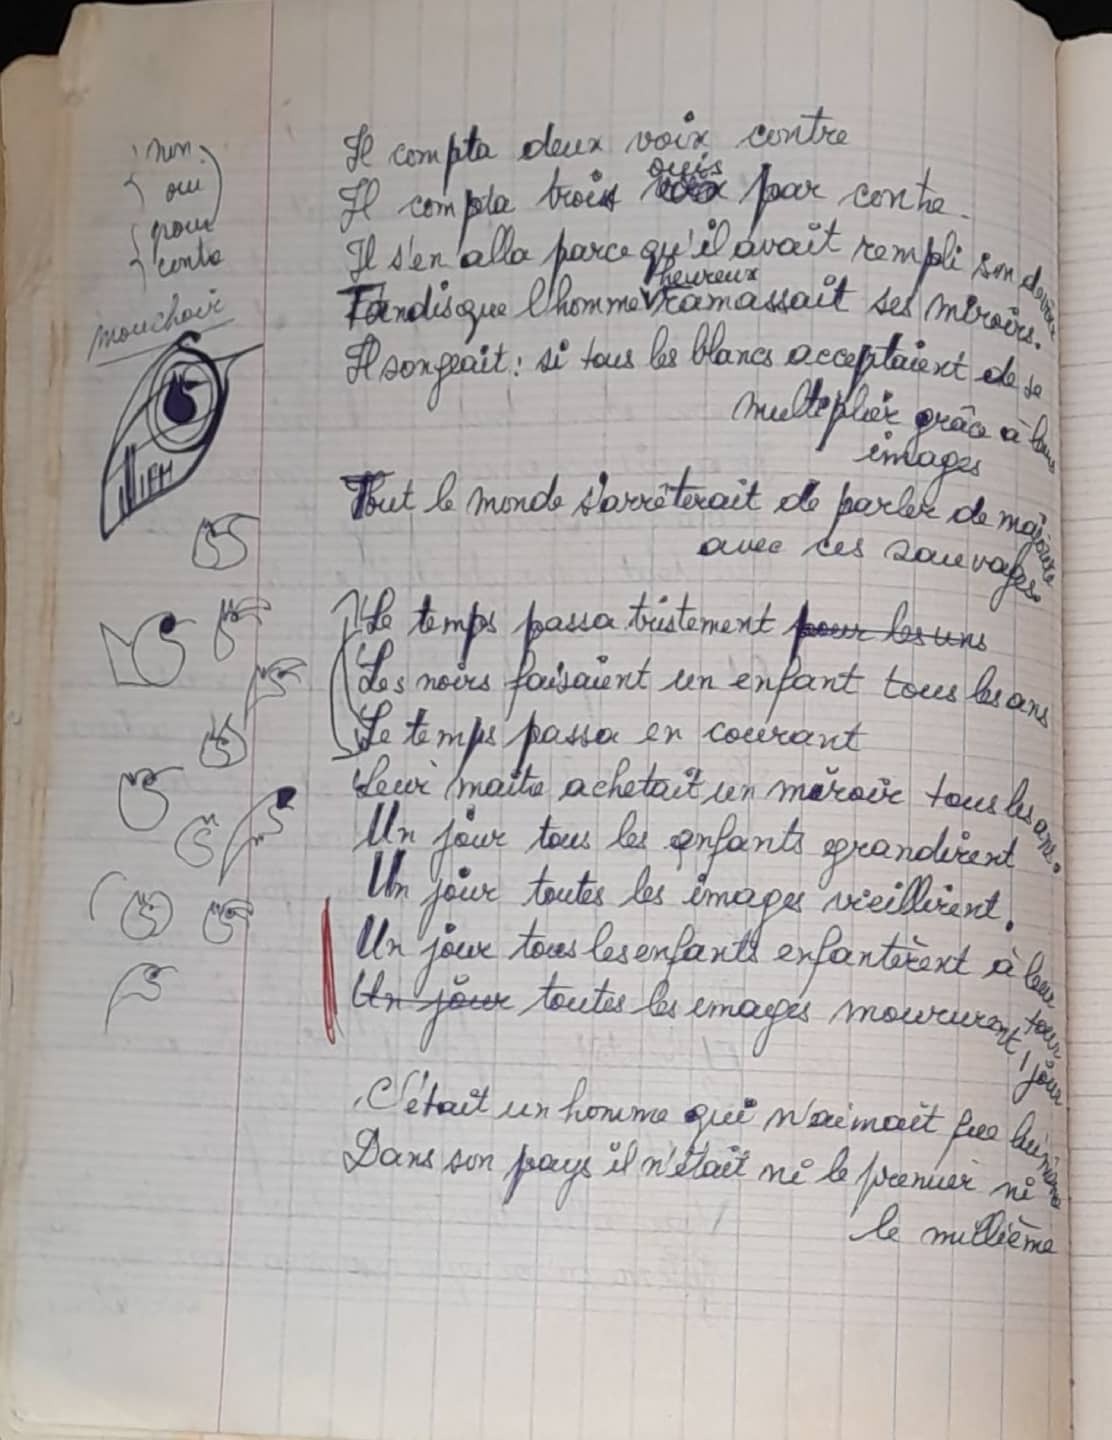 non
oui
pour
contre
mouchoir
Il compta deux voix contre
ouis
Il compta trois par contre.
Il s'en alla parce qu'il avait rempli son devoir
heureux
Tandis que l'homme ramassait ses miroirs.
Il songeait : si tous les blancs acceptaient de se
multiplier grâce à leurs
images
Tout le monde s'arrêterait de parler de majorité
avec ces sauvages.
Le temps passa tristement pour les uns
Les noirs faisaient un enfant tous les ans
Le temps passa en courant
Leur maître achetait un miroir tous les ans.
Un jour tous les enfants grandirent
Un jour toutes les images vieillirent.
Un jour tous les enfants enfantèrent à leur tour
Un jour toutes les images moururent 1 jour
C'était un homme qui n'aimait que lui même
Dans son pays il n'était ni le premier ni
le millième